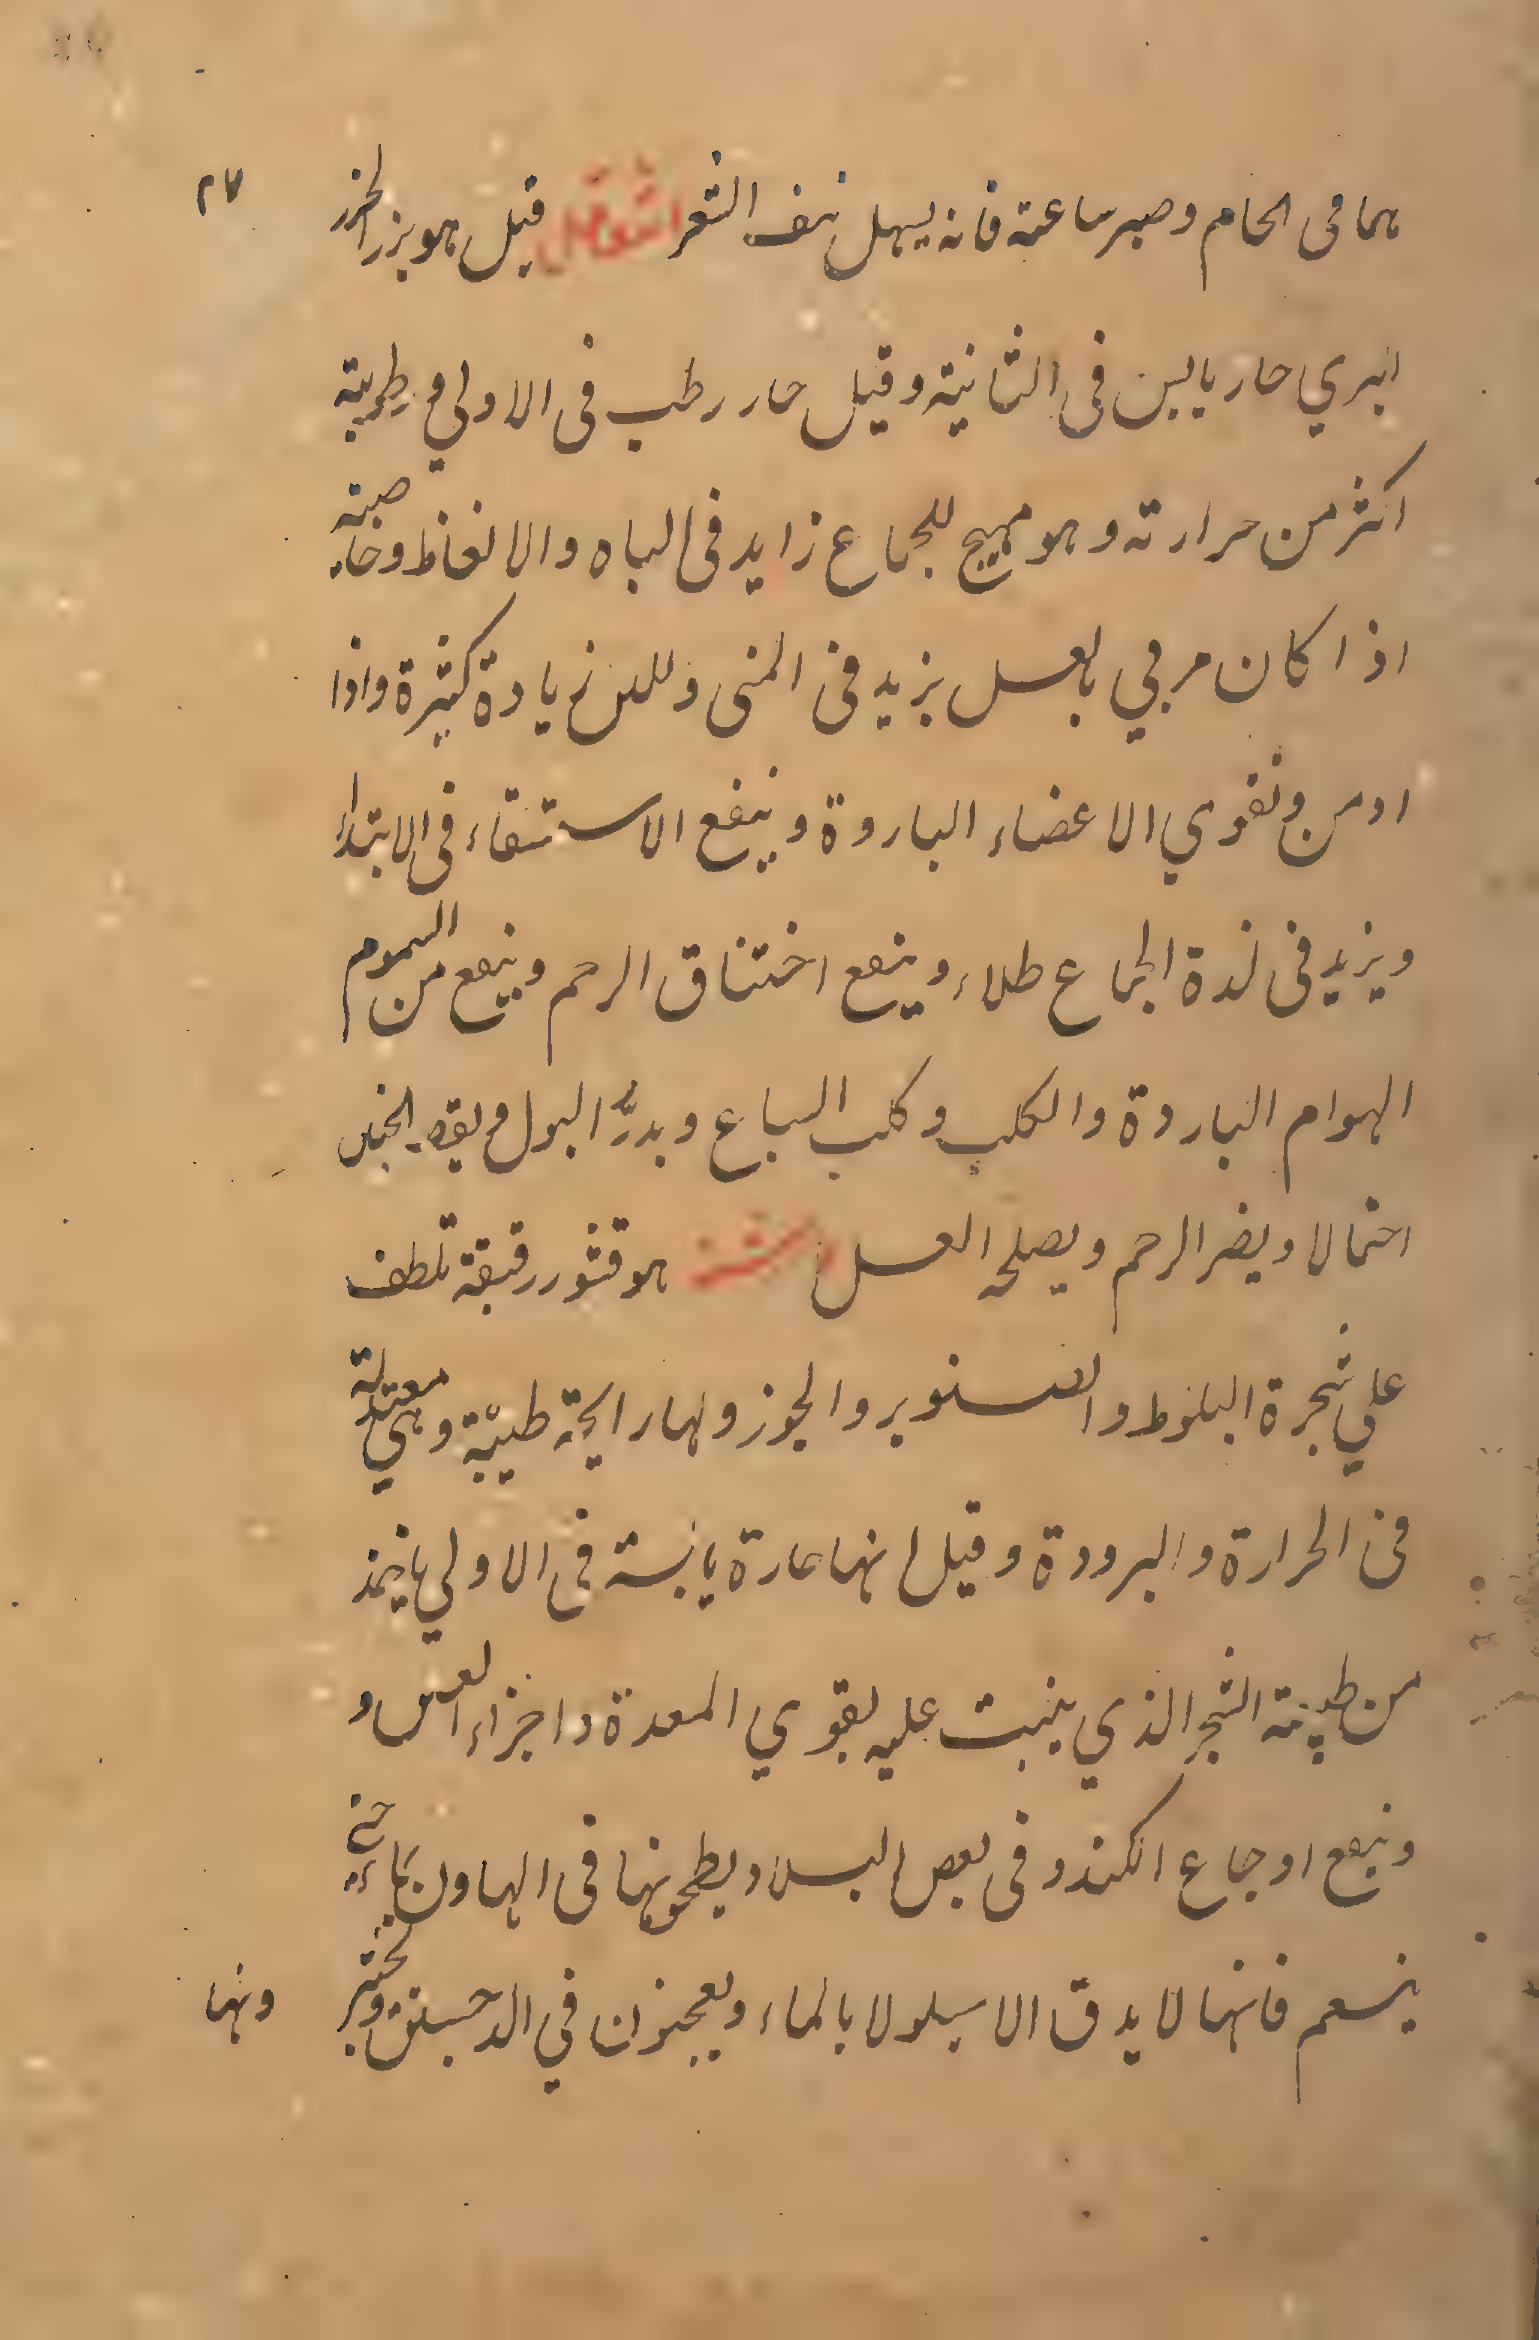 ٢٧
بها فى الحمام وصبر ساعة فانه يسهل نتف الشعر اشقاقل قيل هو بزر الجزر
البري حار يابس فى الثانية وقيل حار رطب فى الاولي ورطوبته
اكثر من حرارته وهو مهيج للجماع زايد فى الباه والانعاظ وخاصيته
اذا كان مربي بالعسل يزيد فى المنى وللبن زيادة كثيرة واذا
ادمن وتقوي الاعضاء الباردة وينفع الاستسقاء فى الابتداء
ويزيد فى لذة الجماع طلاء وينفع اختناق الرحم وينفع من السموم
الهوام الباردة والكلب وكلب السباع ويدرّ البول ويقطع الحيض
احتمالا ويضر الرحم ويصلحه العسل اشنه هو قشور رقيقة تلطف
علي شجرة البلوط والصنوبر والجوز ولها رايحة طيبة وهي معتدلة
فى الحرارة والبرودة وقيل انها حارة يابسة فى الاولي
من طبيعة الشجر الذي ينبت عليه يقوي المعدة واجزاء
وينفع اوجاع الكبد وفى بعض البلاد يطحونها فى الهاون بماء حتى
ينعم فانها لا يدق الا مبلولا بالماء ويعجنون في الدحسنق ويختبر
ونها